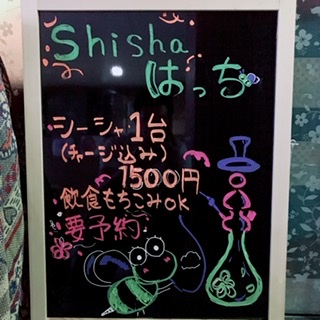 Shisha
はっち
シーシャ1台
(チャージ込み)
7500円
飲食もちこみOK
要予約